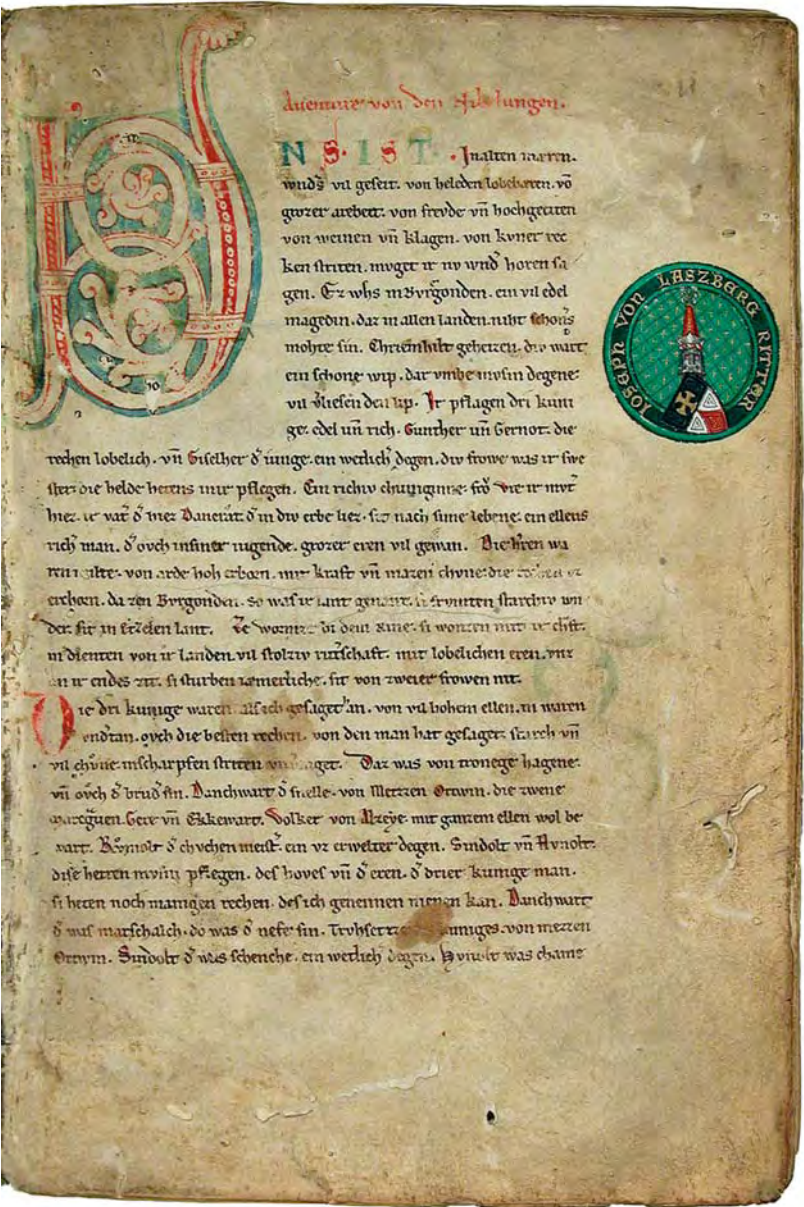 Auenture von den Nibelungen.
UNS· IST · In alten mæren.
wnds̄ vil geseit. von heleden lobebæren. vō
grozer arebeit. von frevde vn̄ hochgeciten
von weinen vn̄ klagen. von kvner rec
ken striten. mvget ir nv wnd̄ horen sa
gen. Ez whs in Bvrgonden. ein vil edel
magedin. daz in allen landen. niht schon̄s
mohte sin. Chriemhilt geheizen. div wart
ein schone wip. dar vmbe mvsin degene.
vil v̄liesen den lip. Ir pflagen dri kuni
ge. edel vn̄ rich. Gunther vn̄ Gernot. die
rechen lobelich. vn̄ Giselher d̄ iunge. ein wetlich̄ degen. div frowe was ir swe
ster. die helde hetens inir pflegen. Ein richiv chuniginne. frō Vte ir mvt̄
hiez. ir vat̄ d̄ hiez Dancrat. d̄ in div erbe liez. sit nach sime lebene. ein ellens
rich̄ man. d̄ ovch insiner iugende. grozer eren vil gewan. Die h̄ren wa
ren milte. von arde hoh erborn. mit kraft vn̄ mazen chvne. die rechen vz
erchorn. da zen Bvrgonden. so was ir lant genant. si frvmten starchiv wn
der. sit in Etzelen lant. Ze wormz bi dem Rine. si wonten mit ir chft.
in dienten von ir landen. vil stolziv ritt̄schaft. mit lobelichen eren. vnz
an ir endes zit. si sturben iæmerliche. sit von zweier frowen nit.
Die dri kunige waren. als ich gesaget han. von vil hohem ellen. in waren
vndtan. ovch die besten rechen. von den man hat gesaget. starch vn̄
vil chvne. in scharpfen striten vnverzaget. Daz was von tronege hagene.
vn̄ ovch d̄ brud̄ sin. Danchwart d̄ snelle. von Metzzen Ortwin. die zwene
maregūen. Gere vn̄ Ekkewart. Volker von Alzeye. mit ganzem ellen wol be
wart. Rvmolt d̄ chvchen meist̄. ein vz erwelter degen. Sindolt vn̄ Hvnolt.
dise herren mvsin pflegen. des hoves vn̄ d̄ eren. d̄ drier kunige man.
si heten noch manigen rechen. des ich genennen nienen kan. Danchwart
d̄ was marschalch. do was d̄ nefe sin. Trvhsetze kuniges. von mezzen
Ortwin. Sindolt d̄ was schenche. ein wetlich degen. Hvnolt was chame
IOSEPH VON LASZBERG RITTER